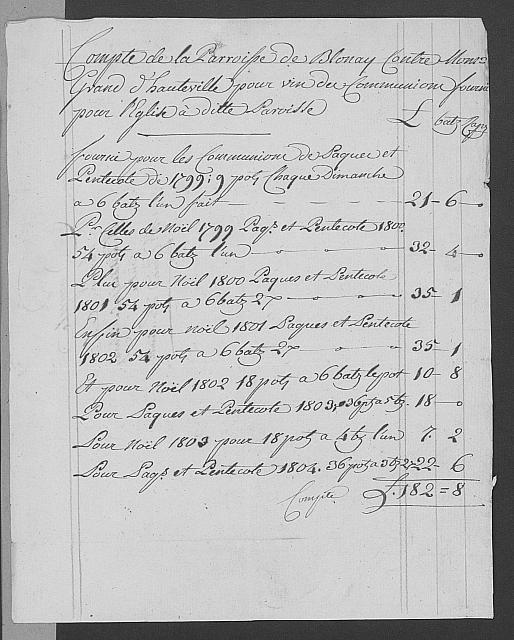 Compte de la Parroisse de Blonay Contre Monsr
Grand d'hauteville pour vin de Communions fourni
pour l'Eglise à ditte Paroisse
£ batz Rap
fourni pour les Communions de Paques et
Pentecote de 1799: 9 pots Chaque Dimanche
a 6 batz l'un fait 21 - 6 - 0
Pr Celles de Noël 1799 Paqs et Pentecote 1800
54 pots a 6 batz l'un 32 - 4 - 0
Plus pour Noël 1800 Paques et Pentecote
1801 54 pots a 6 batz 35 - 1
Enfin pour Noël 1801 Paques et Pentecote
1802 54 pots a 6 batz 35 - 1
Et pour Noël 1802 18 pots a 6 batz le pot 10 - 8
Pour Paques et Pentecote 1803, 36 pts a 5 bz. 18 - 0
Pour Noël 1803 pour 18 pots a 4 btz l'un 7. 2
Pour Paqs et Pentecote 1804. 36 pots a 22 - 6
Compte £. 182 = 8